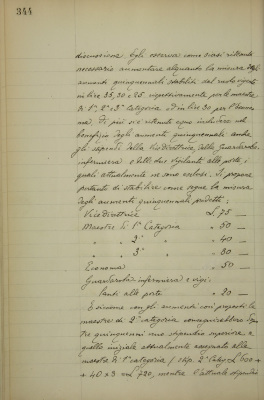 344
discussione. Egli osserva come siasi ritenuto
necessario aumentare alquanto la misura degli
aumenti quinquennali stabiliti dal ruolo vigente
in lire 35, 30 e 25 rispettivamente per le maestre
di 1ª, 2ª e 3ª Categoria ed in lire 30 per l'Econo-
ma. Di più si è ritenuto equo includere nel
beneficio degli aumenti quinquennali anche
gli stipendi della Vice direttrice, della Guardarobe
infermiera e delle due vigilanti alle porte, i
quali attualmente ne sono esclusi. Si propone
pertanto di stabilire come segue la misura
degli aumenti quinquennali predetti:
Vice direttrice L. 75 —
Maestre di 1ª Categoria " 50 —
" " 2ª " " 40 —
" " 3ª " " 30 —
Economa " 50 —
Guardarobe infermiera e vigi-
lanti alle porte " 20 —
E siccome con gli aumenti così proposti le
maestre di 2ª categoria conseguirebbero dopo
tre quinquenni uno stipendio superiore a
quello iniziale attualmente assegnato alle
maestre di 1ª categoria (stip. 2ª Categ. L. 600 +
+ 40 x 3 = L. 720, mentre l'attuale stipendio